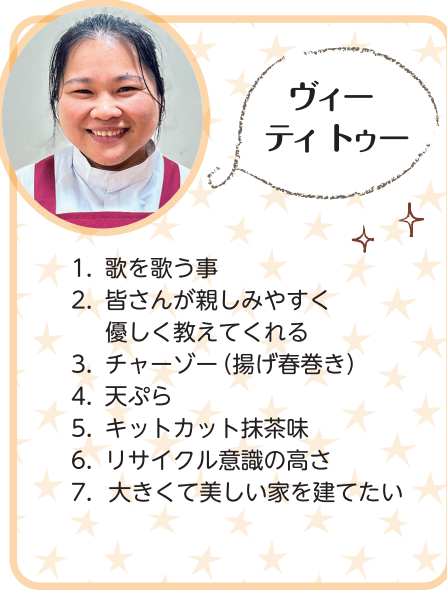 ヴィー
ティ トゥー
1. 歌を歌う事
2. 皆さんが親しみやすく
優しく教えてくれる
3. チャーゾー（揚げ春巻き）
4. 天ぷら
5. キットカット抹茶味
6. リサイクル意識の高さ
7. 大きくて美しい家を建てたい